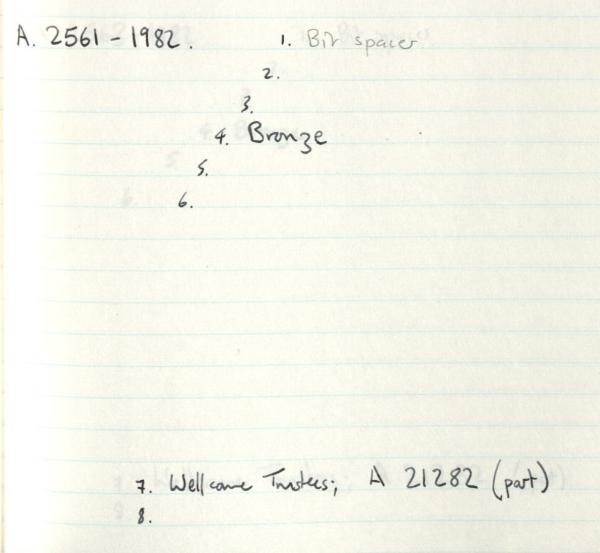 A. 2561-1982. 1. Bit spacer
2.
3.
4. Bronze
5.
6.
7. Wellcome Trustees; A 21282 (part)
8.